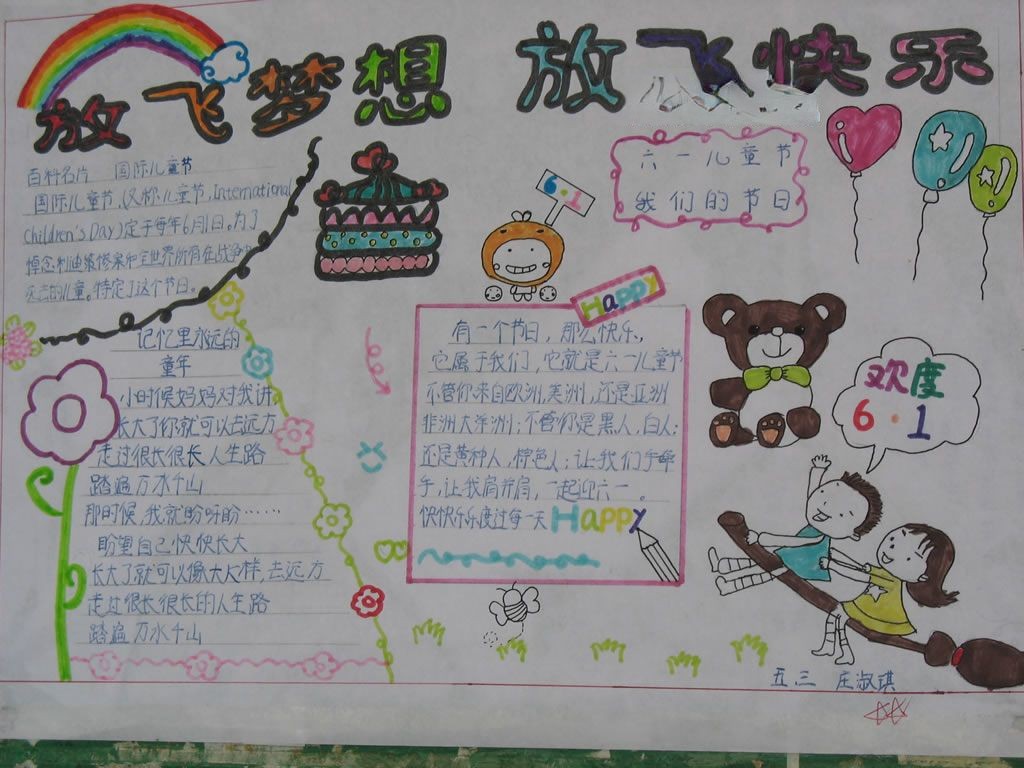 放飞梦想 放飞快乐
百科名片 国际儿童节
国际儿童节,(又称儿童节,International
Children's Day)定于每年6月1日。为了
悼念利迪策惨案和全世界所有在战争中
死去的儿童。特定了这个节日。
记忆里永远的
童年
小时候妈妈对我讲
长大了你就可以去远方
走过很长很长人生路
踏遍万水千山
那时候,我就盼呀盼……
盼望自己快快长大
长大了就可以像大人一样,去远方
走过很长很长的人生路
踏遍万水千山
6·1
六一儿童节
我们的节日
Happy
有一个节日,那么快乐,
它属于我们,它就是六一儿童节
不管你来自欧洲,美洲,还是亚洲
非洲大洋洲;不管你是黑人,白人;
还是黄种人,棕色人;让我们手牵
手,让我肩并肩,一起迎六一。
快快乐乐度过每一天 Happy
欢度
6·1
五三 庄淑琪